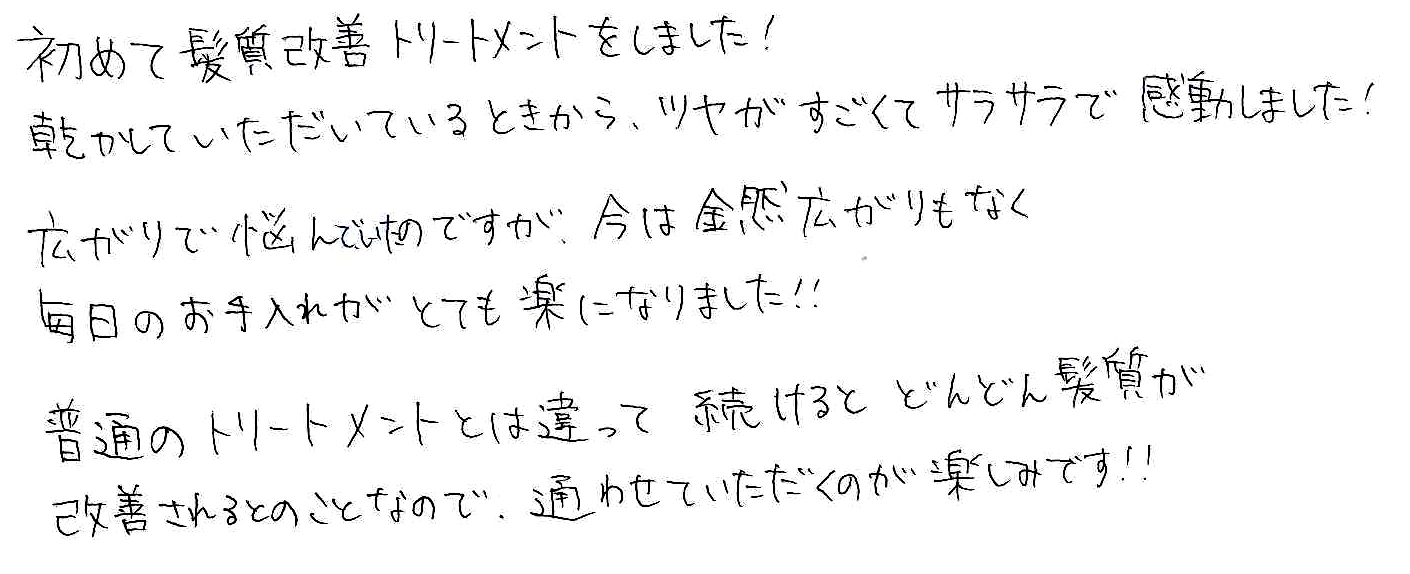 初めて髪質改善トリートメントをしました!
乾かしていただいているときから、ツヤがすごくてサラサラで感動しました!
広がりで悩んでいたのですが、今は全然広がりもなく
毎日のお手入れがとても楽になりました!!
普通のトリートメントとは違って続けるとどんどん髪質が
改善されるとのことなので、通わせていただくのが楽しみです!!